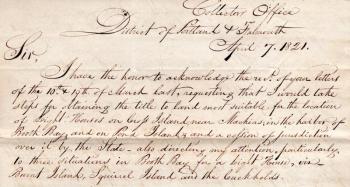 Collector Office
District of Portland & Falmouth
April 7. 1821.
Sir,
I have the honor to acknowledge the rec. of your letters
of the 10th & 19th of March last, requesting that I would take
steps for obtaining the title to land most suitable for the location
of Light Houses on Island near Machias, in the harbor of
Booth Bay, and on Pond Island, and a cession of jurisdiction
over it by the State – also directing my attention, particularly,
to three situations in Booth Bay for a Light House, viz
Burnt Island, Squirrel Island and the Cuckholds.